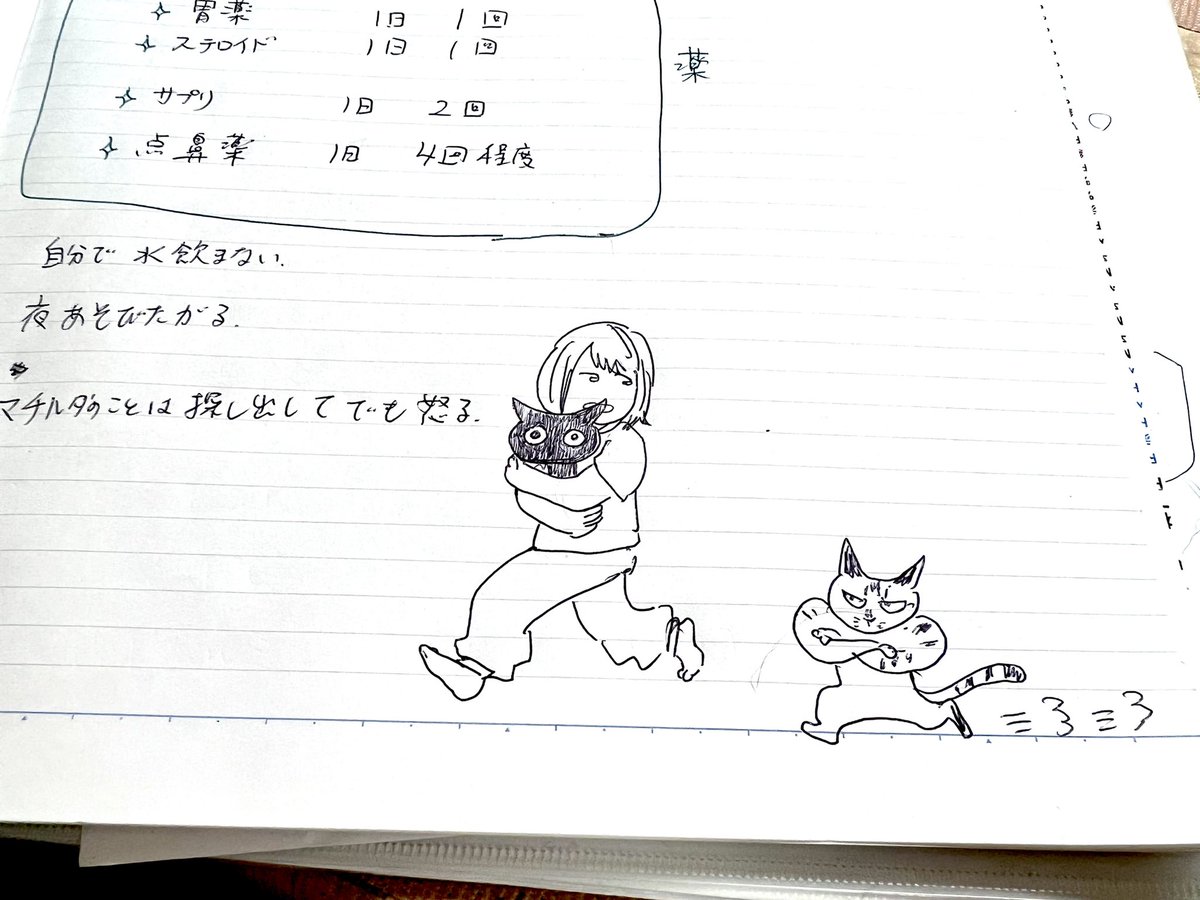 ✧ 胃薬 1日 1回
✧ ステロイド 1日 1回
薬
✧ サプリ 1日 2回
✧ 点鼻薬 1日 4回程度
自分で水飲まない.
夜あそびたがる.
マチルダのことは探し出してでも怒る.